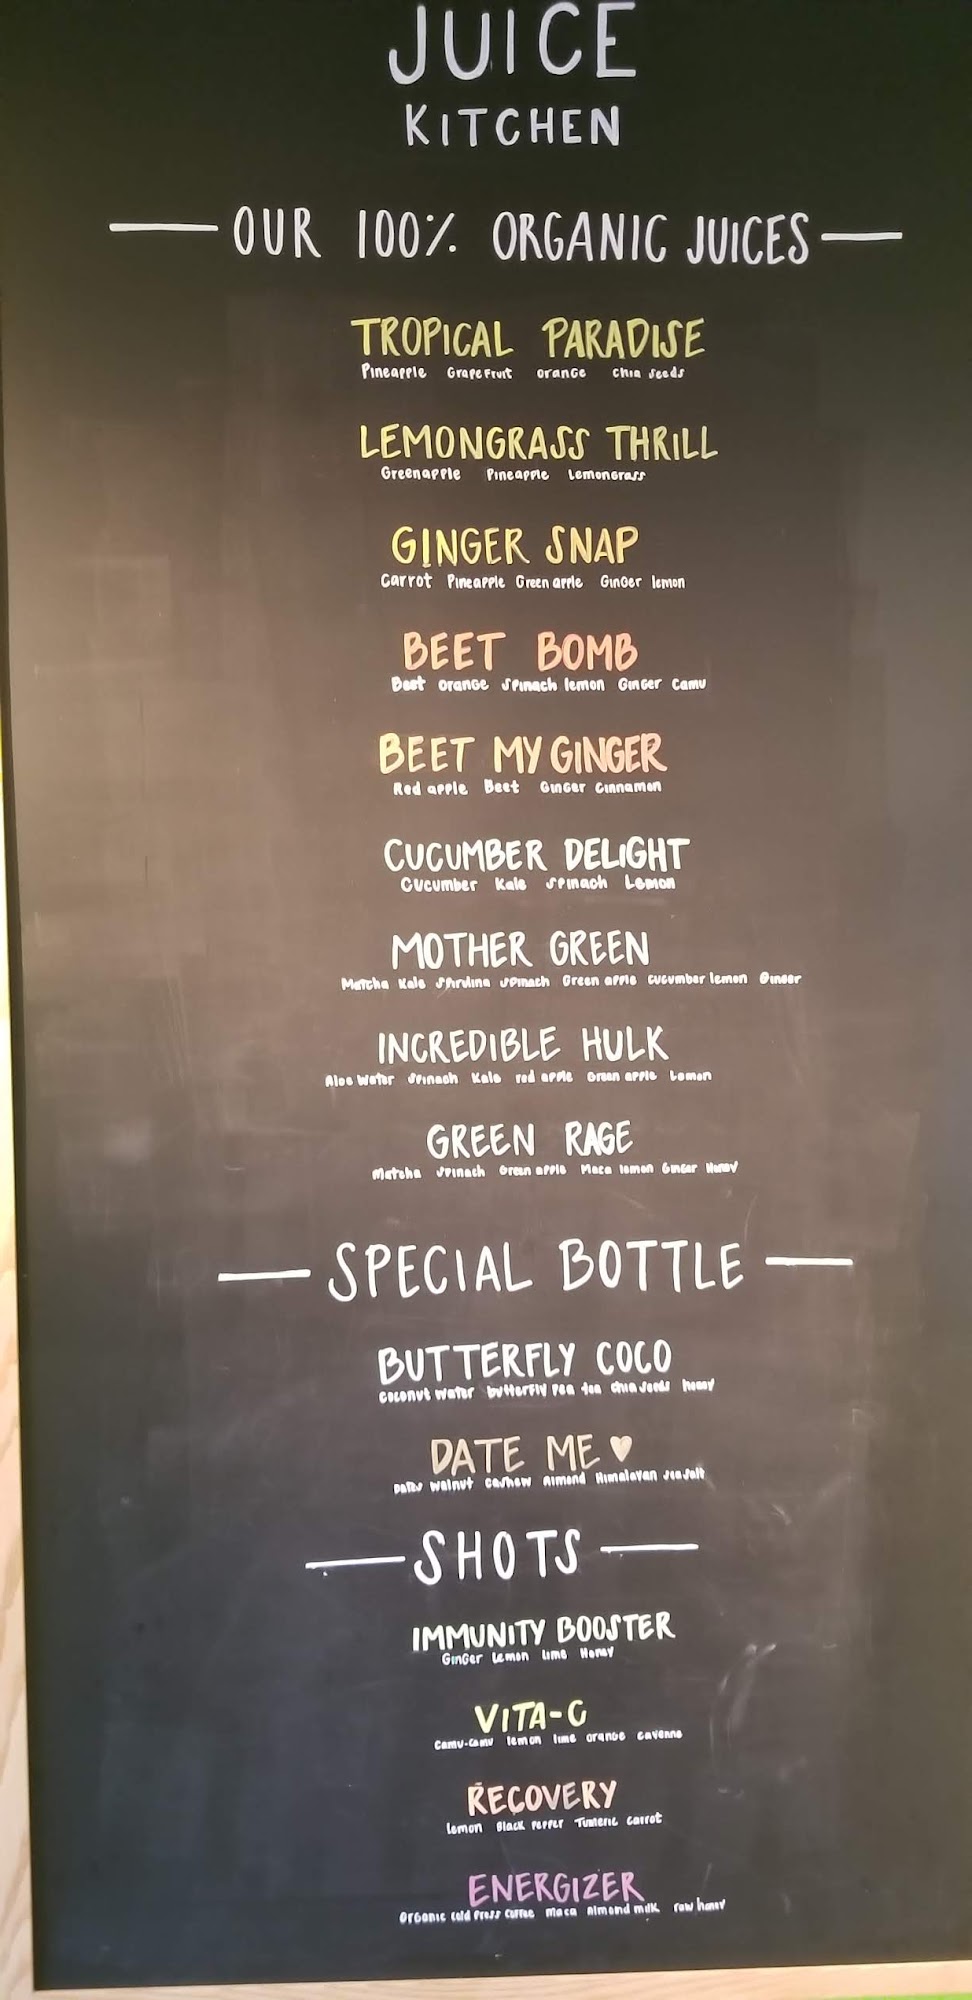 JUICE
KITCHEN
OUR 100% ORGANIC JUICES
TROPICAL PARADISE
Pineapple Grapefruit orange chia seeds
LEMONGRASS THRILL
Greenapple Pineapple Lemongrass
GINGER SNAP
Carrot Pineapple Green apple Ginger lemon
BEET BOMB
Beet orange spinach lemon Ginger Camu
BEET MY GINGER
Red apple Beet Ginger Cinnamon
CUCUMBER DELIGHT
Cucumber Kale spinach Lemon
MOTHER GREEN
Matcha Kale Spirulina spinach Green apple cucumber lemon Ginger
INCREDIBLE HULK
Aloe Water Spinach Kale red apple Green apple Lemon
GREEN RAGE
Matcha spinach Green apple Maca lemon Ginger Honey
SPECIAL BOTTLE
BUTTERFLY COCO
Coconut water butterfly pea tea chia seeds honey
DATE ME ♥
Dates walnut cashew Almond Himalayan sea salt
SHOTS
IMMUNITY BOOSTER
Ginger Lemon Lime Honey
VITA-C
Camu-Camu lemon lime orange cayenne
RECOVERY
lemon Black Pepper Tumeric Carrot
ENERGIZER
Organic cold Press Coffee maca Almond milk raw honey